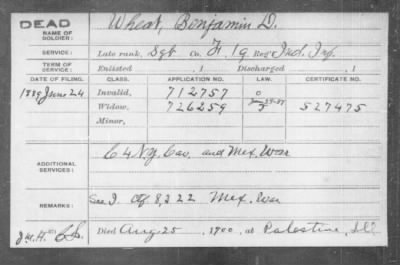 DEAD
NAME OF SOLDIER: Wheat, Benjamin D.
SERVICE: Late rank, Sgt Co. F, 19 Reg't Ind. Inf.
TERM OF SERVICE: Enlisted , 1 Discharged , 1
DATE OF FILING. CLASS. APPLICATION NO. LAW. CERTIFICATE NO.
1889 June 24 Invalid, 712757 0
Widow, 726259 527475
Minor,
ADDITIONAL SERVICES: C 4 N.Y. Cav. and Mex. War
REMARKS: See I. Of 8,322 Mex. War
Died Aug 25, 1900, at Palestine, Ill